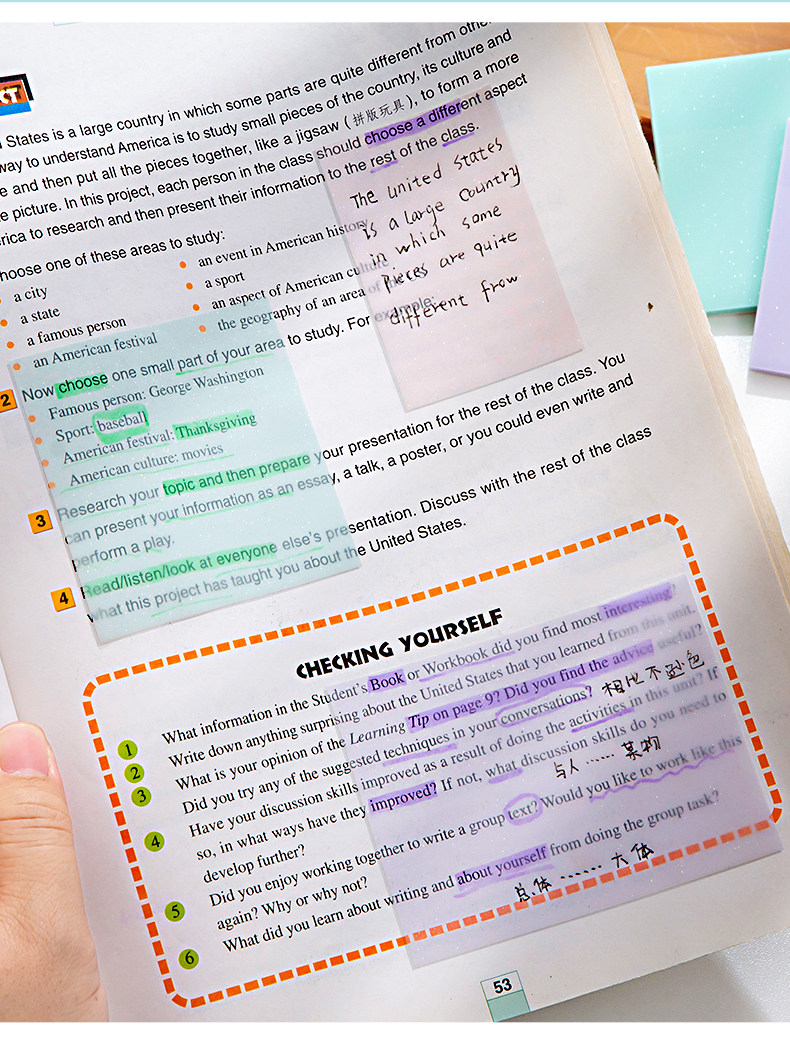 States is a large country in which some parts are quite different from
way to understand America is to study small pieces of the country, its culture and
and then put all the pieces together, like a jigsaw (拼版玩具), to form a more
picture. In this project, each person in the class should choose a different aspect
to research and then present their information to the rest of the class.
choose one of these areas to study:
a city
a state
a famous person
an American festival
an event in American history
a sport
an aspect of American culture
the geography of an area of
The United States
is a large country
in which some
pieces are quite
different from
2 Now choose one small part of your area to study. For example:
Famous person: George Washington
Sport: baseball
American festival: Thanksgiving
American culture: movies
3 Research your topic and then prepare your presentation for the rest of the class. You
can present your information as an essay, a talk, a poster, or you could even write and
perform a play.
4 Read/listen/look at everyone else's presentation. Discuss with the rest of the class
what this project has taught you about the United States.
CHECKING YOURSELF
1 What information in the Student's Book or Workbook did you find most interesting?
2 Write down anything surprising about the United States that you learned from this unit.
3 What is your opinion of the Learning Tip on page 9? Did you find the advice useful?
Did you try any of the suggested techniques in your conversations?
相比不逊色
4 Have your discussion skills improved as a result of doing the activities in this unit? If
so, in what ways have they improved? If not, what discussion skills do you need to
develop further?
与人……某物
5 Did you enjoy working together to write a group text? Would you like to work like this
again? Why or why not?
6 What did you learn about writing and about yourself from doing the group task?
总体……体
53